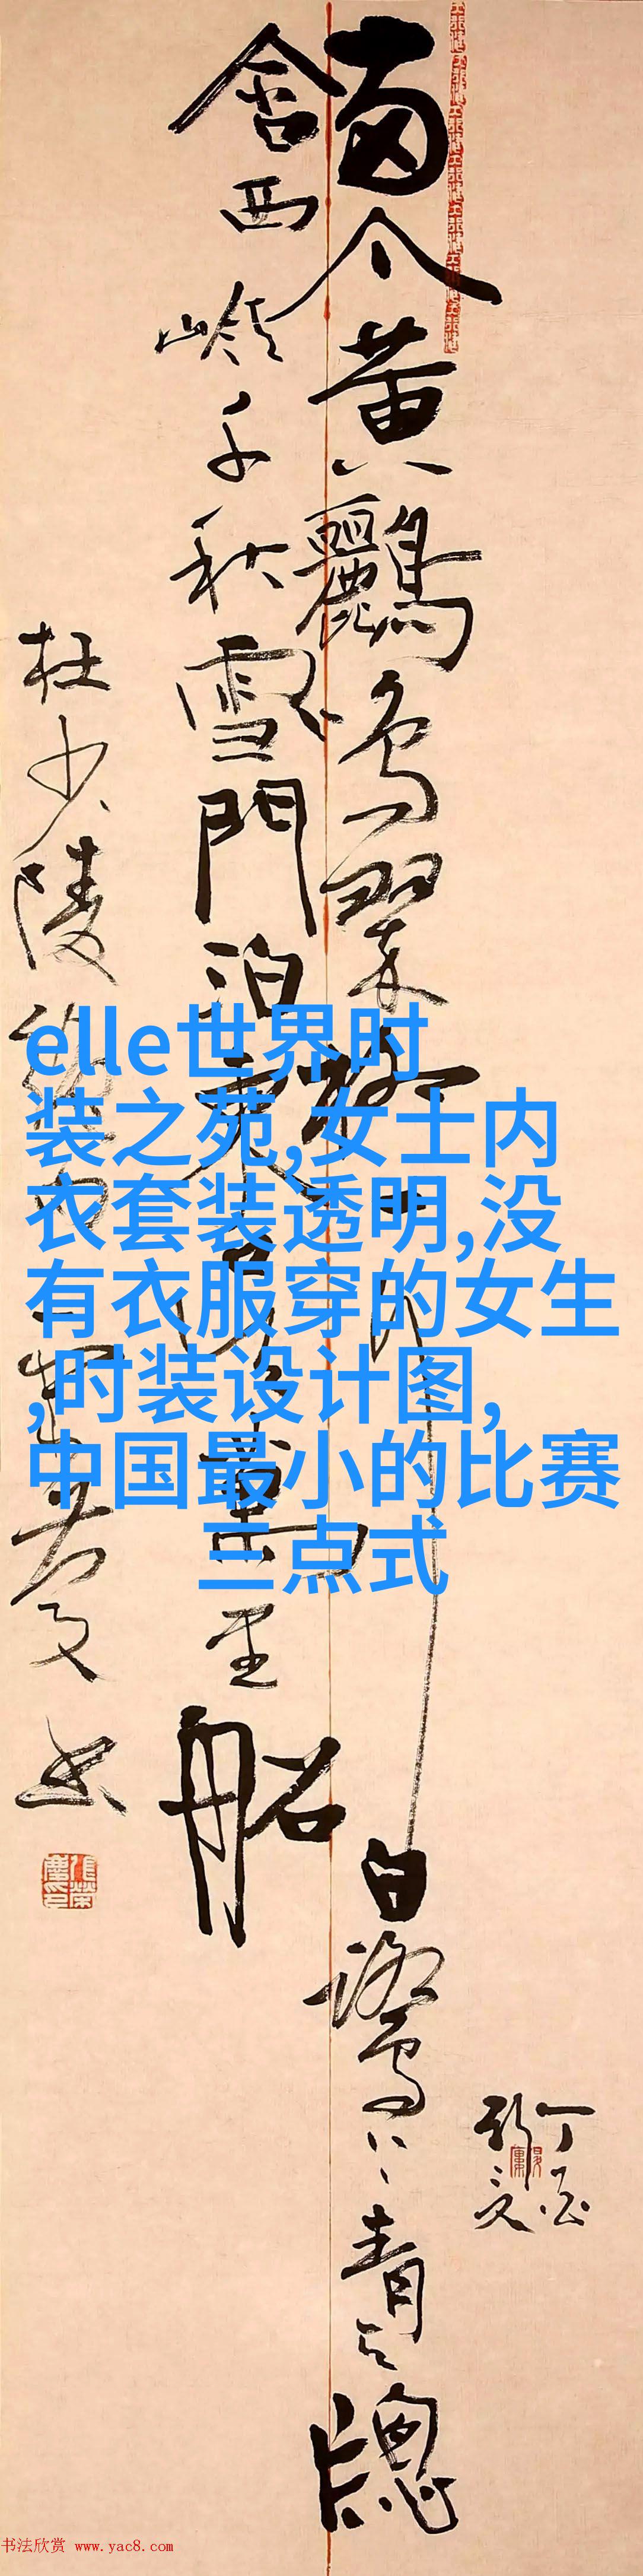 兩个黃鸝鳴翠柳一行白鷺上青天牕
含西嶺千秋雪門泊東吳萬里船
杜少陵絕句
elle世界时
装之苑,女士内
衣套装透明,没
有衣服穿的女生
,时装设计图,
中国最小的比赛
三点式
书法欣赏 www.yac8.com